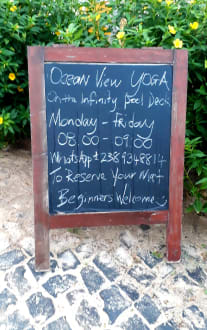 Ocean View YOGA
On the Infinity Pool Deck
Monday - Friday
08.00 - 09.00
WhatsApp + 2389348814
To Reserve Your Mat
Beginners Welcome